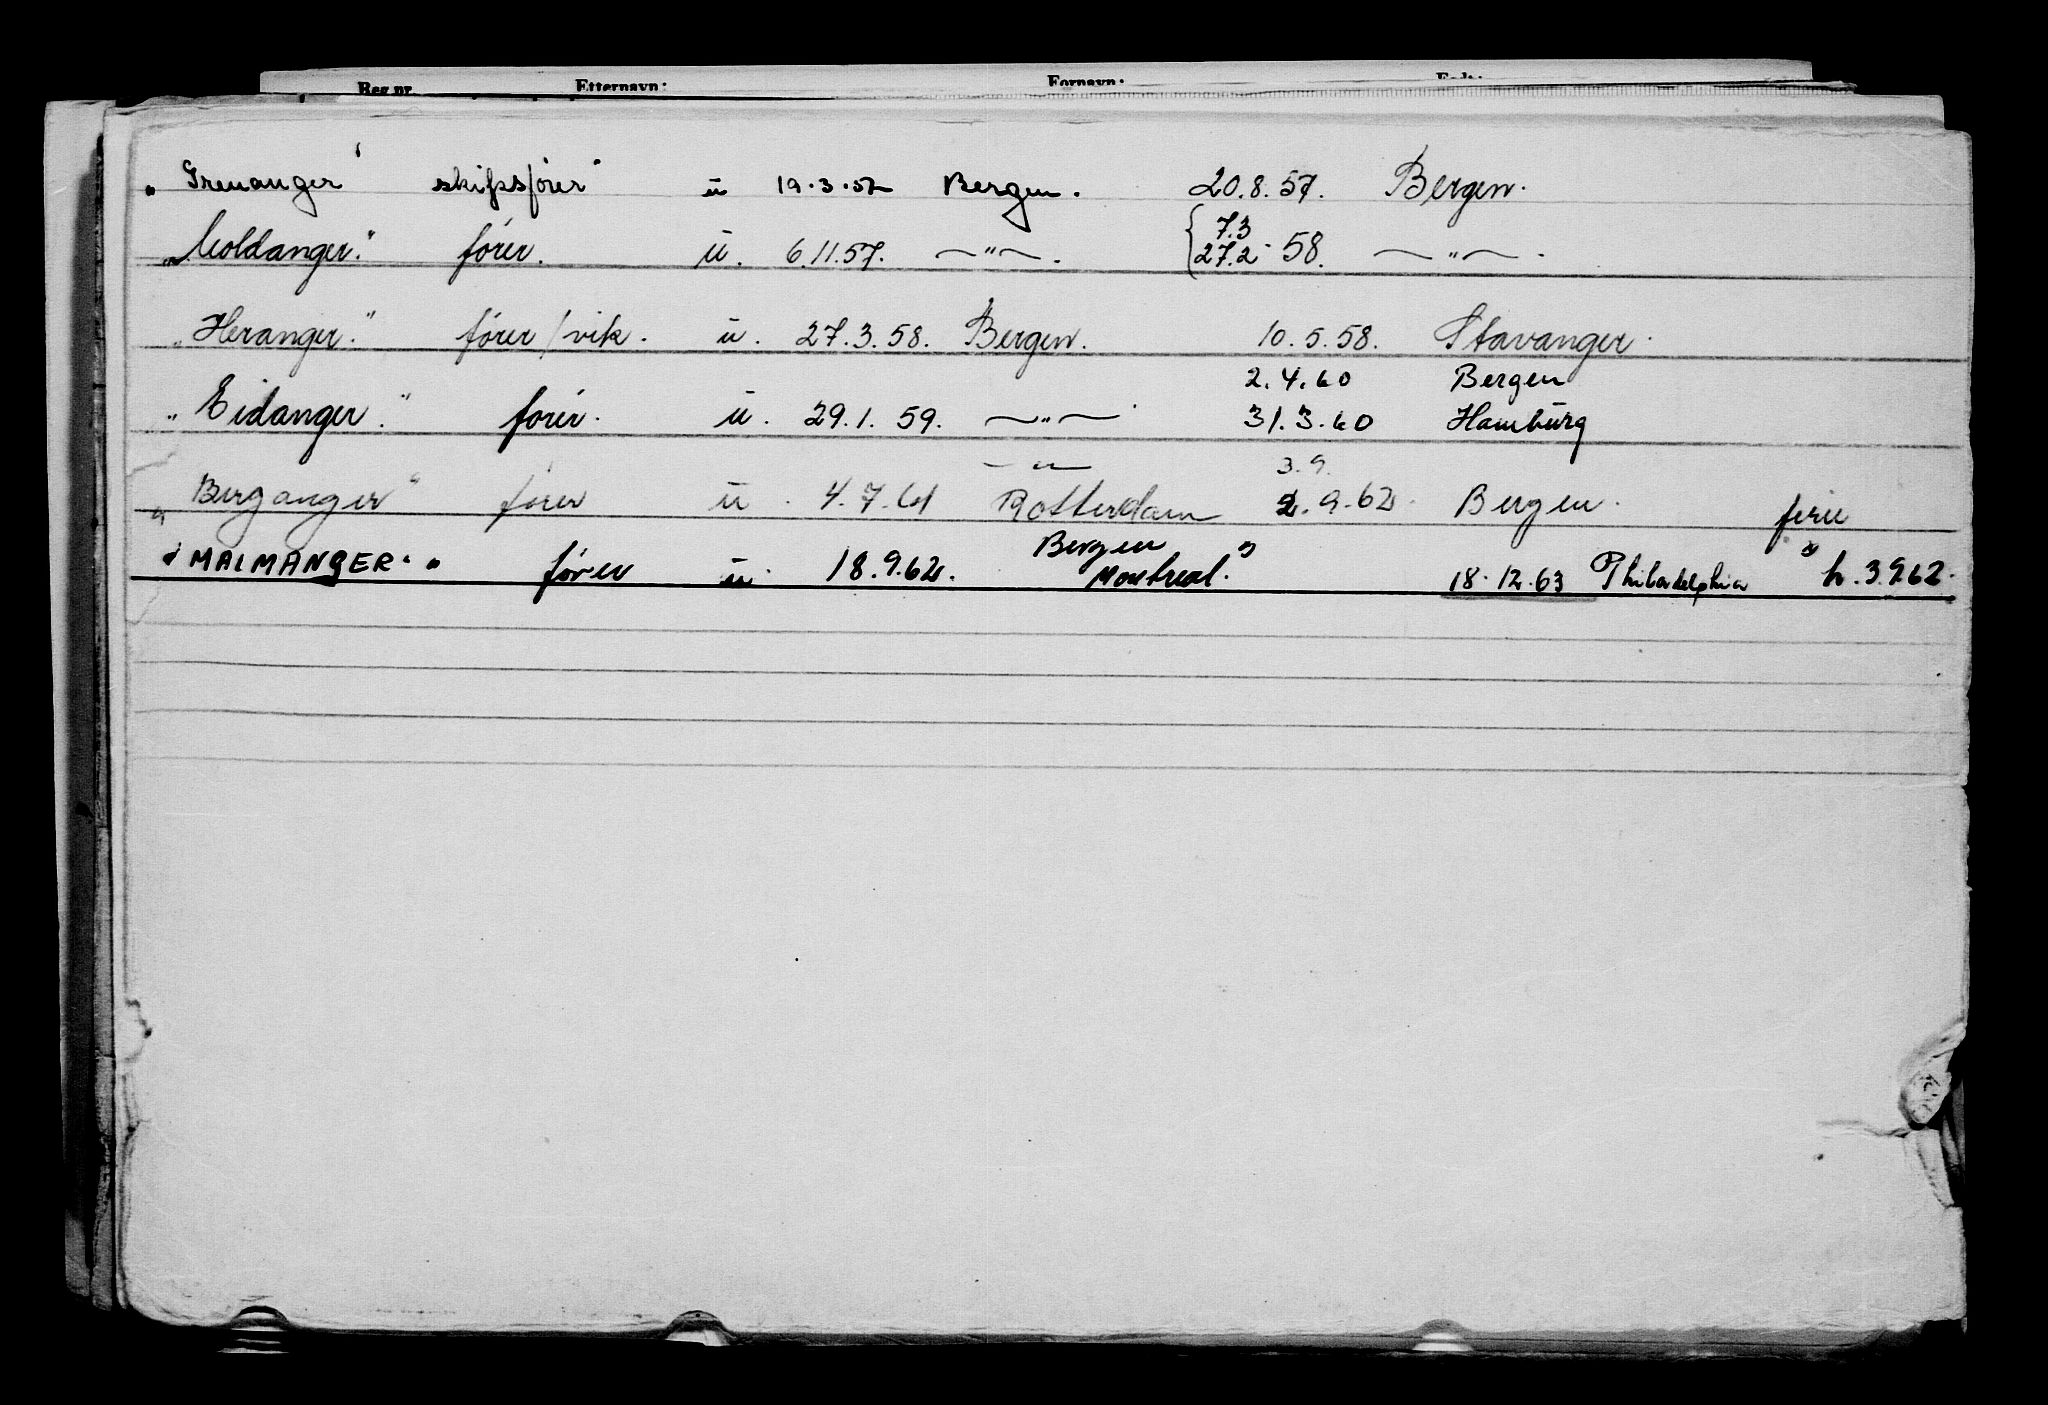 Reg.nr. Etternavn: Fornavn: Født:
„Grenanger" skipsfører u 19.3.52 Bergen. 20.8.57. Bergen.
7.3
„Moldanger." fører. u. 6.11.57. —"—. 27.2.58. —"—.
„Heranger." fører/vik. u. 27.3.58. Bergen. 10.5.58. Stavanger.
2.4.60 Bergen
„Eidanger." fører. u. 29.1.59. —"— 31.3.60 Hamburg
—"— 3.9.
„Berganger" fører u. 4.7.61 Rotterdam 2.9.62. Bergen. ferie
Bergen
"MALMANGER." fører u. 18.9.62. Montreal." 18.12.63 Philadelphia " h. 3.9.62.